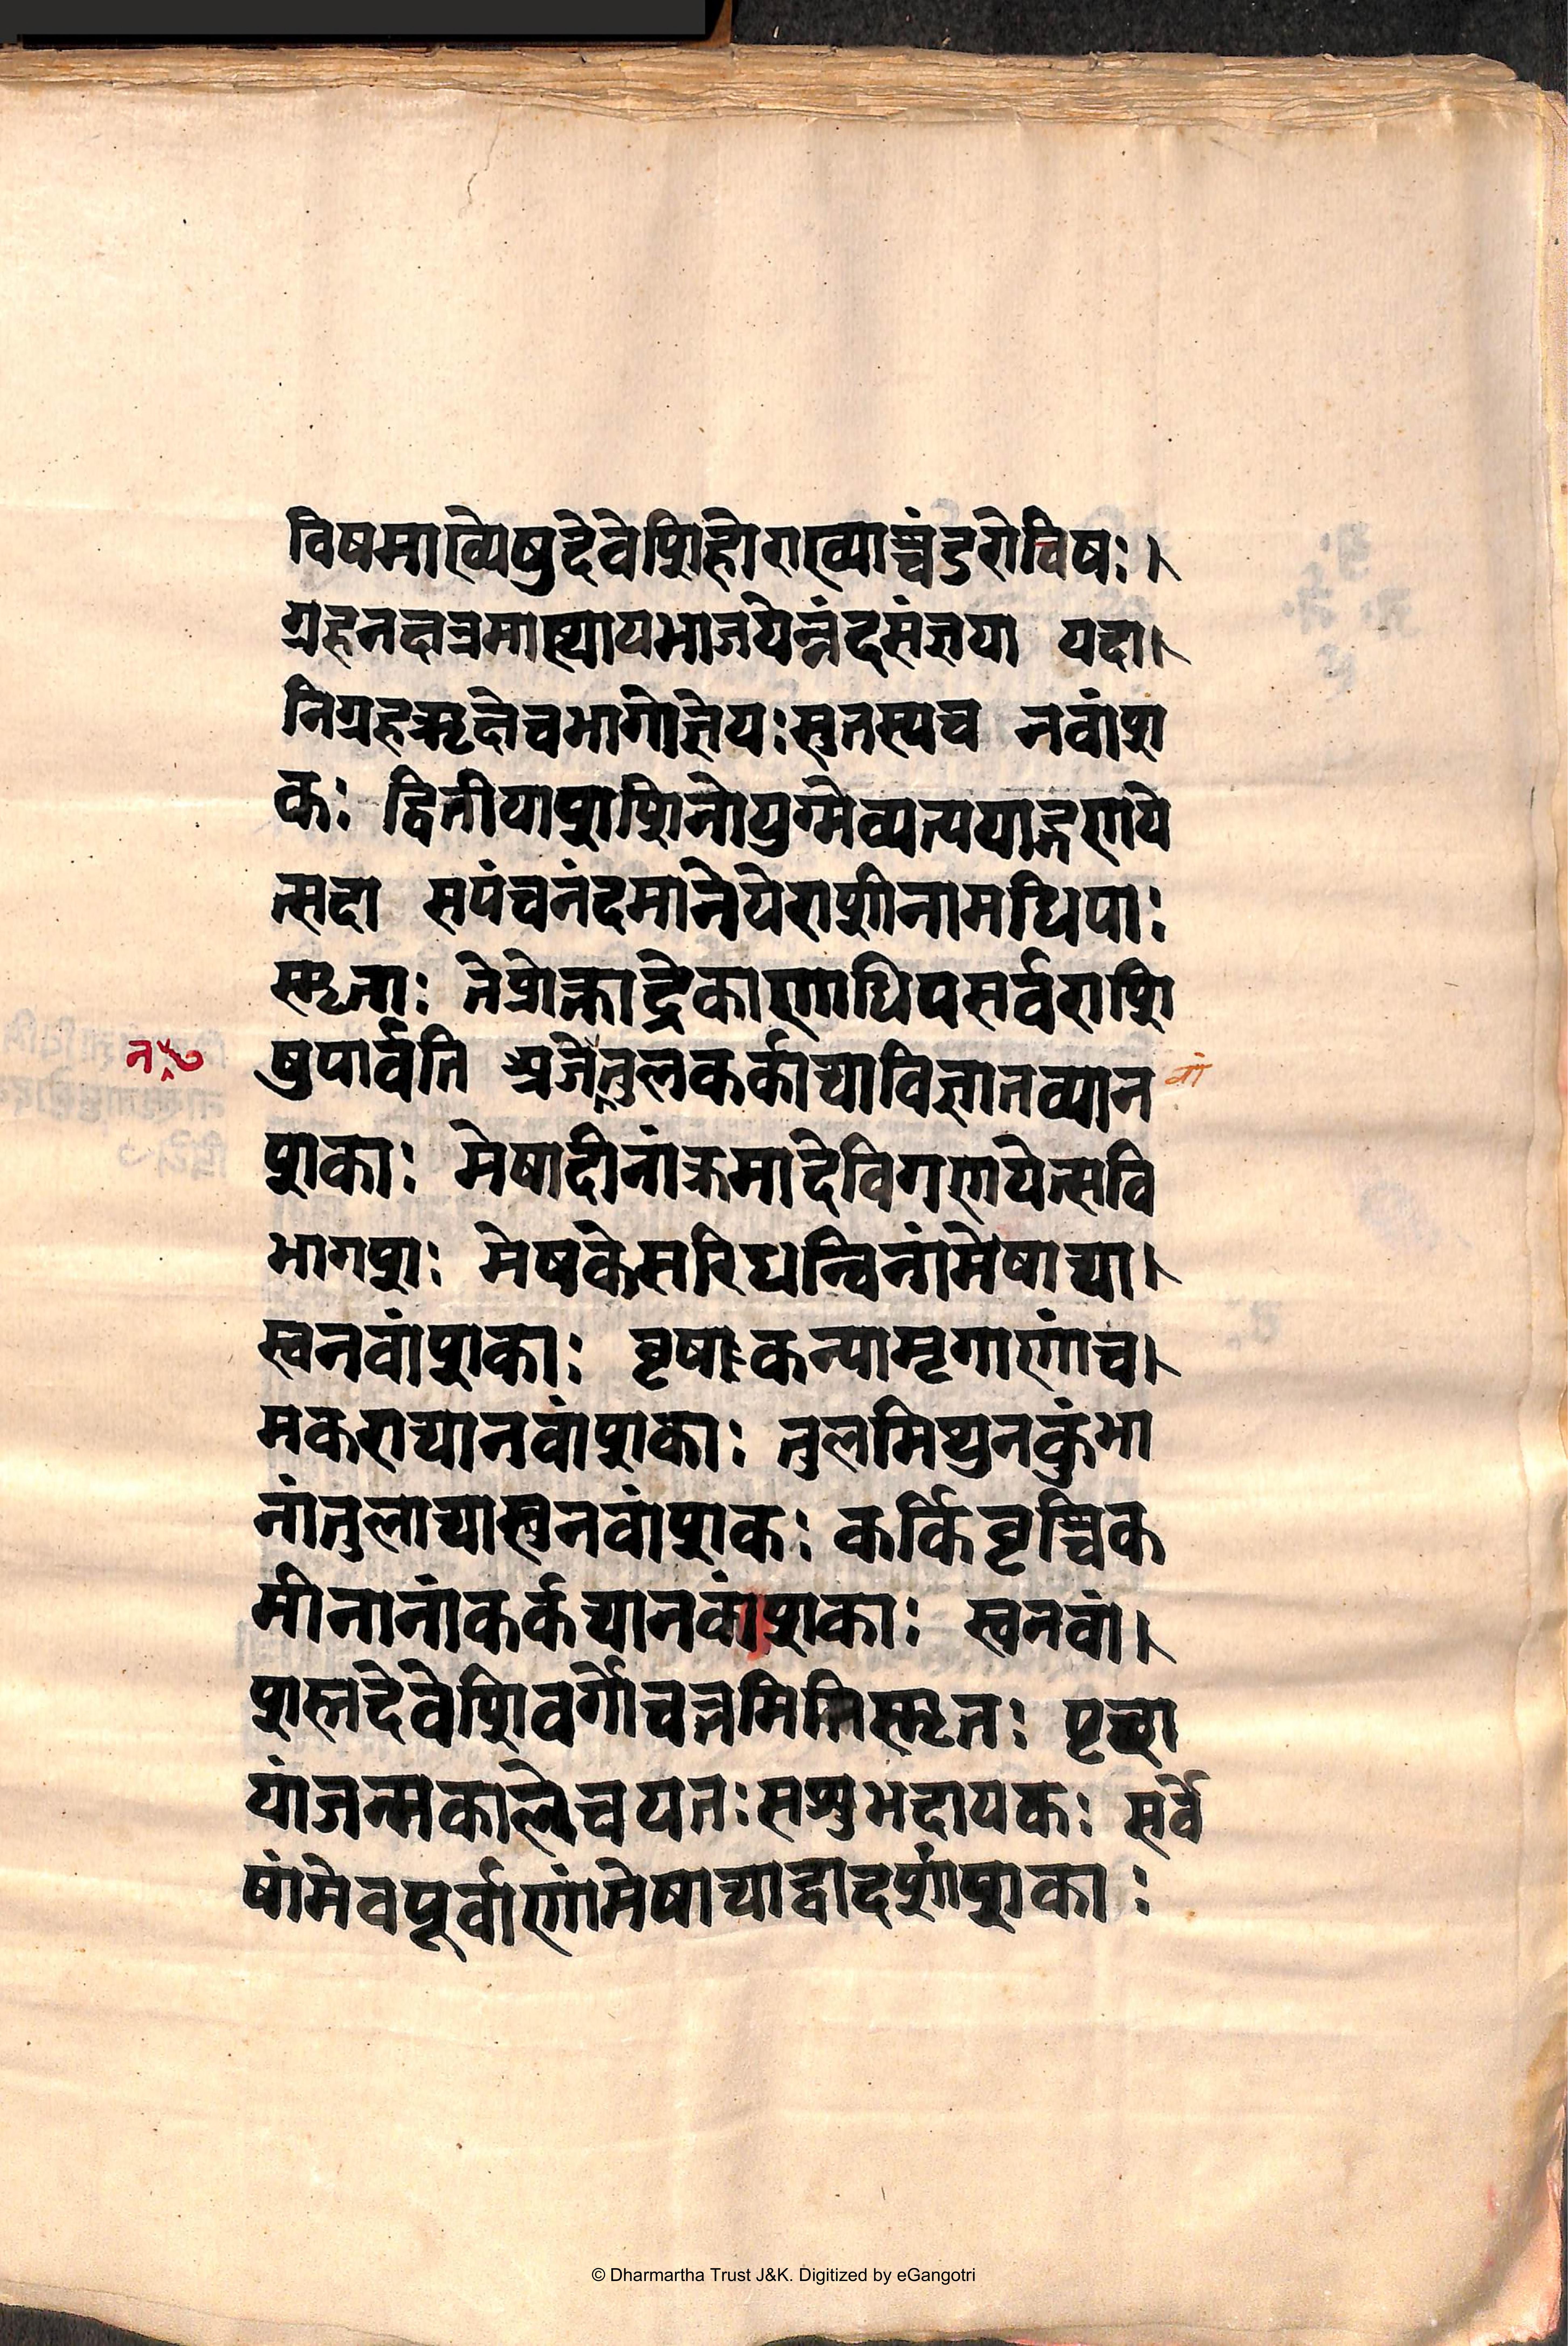 विषमाख्येषुदेवेशिहोराख्याच्चंडरोविषः।
ग्रहनक्षत्रमास्थायभाजयेन्नंदसंज्ञया यदा।
निग्रहऋक्षेचभागोज्ञेयःसुतस्यच नवांश
कः द्वितीयाशशिनोयुग्मेव्यत्ययाद्गणये
त्सदा सपंचनंदमानेयेराशीनामधिपाः
स्मृताः तेप्रोक्ताद्रेकाणाधिपसर्वराशि
षुपार्वति अजेतुलकर्काद्याविज्ञातव्यान
वां
शकाः मेषादीनांक्रमादेविगणयेत्सवि
भागशः मेषकेसरिधन्विनांमेषाद्या।
स्वनवांशकाः वृषाःकन्यामृगाणांच।
मकराद्यानवांशकाः तुलमिथुनकुंभा
नांतुलाद्यास्तुनवांशकः कर्किवृश्चिक
मीनानांकर्कद्यानवांशकाः स्वनवां।
शस्तदेवेशिवर्गोचत्तमितिस्मृतः पृच्छा
यांजन्मकालेचयतःसशुभदायकः सर्वे
षांमेवपूर्वाणांमेषाद्याद्वादशांशकाः
© Dharmartha Trust J&K. Digitized by eGangotri